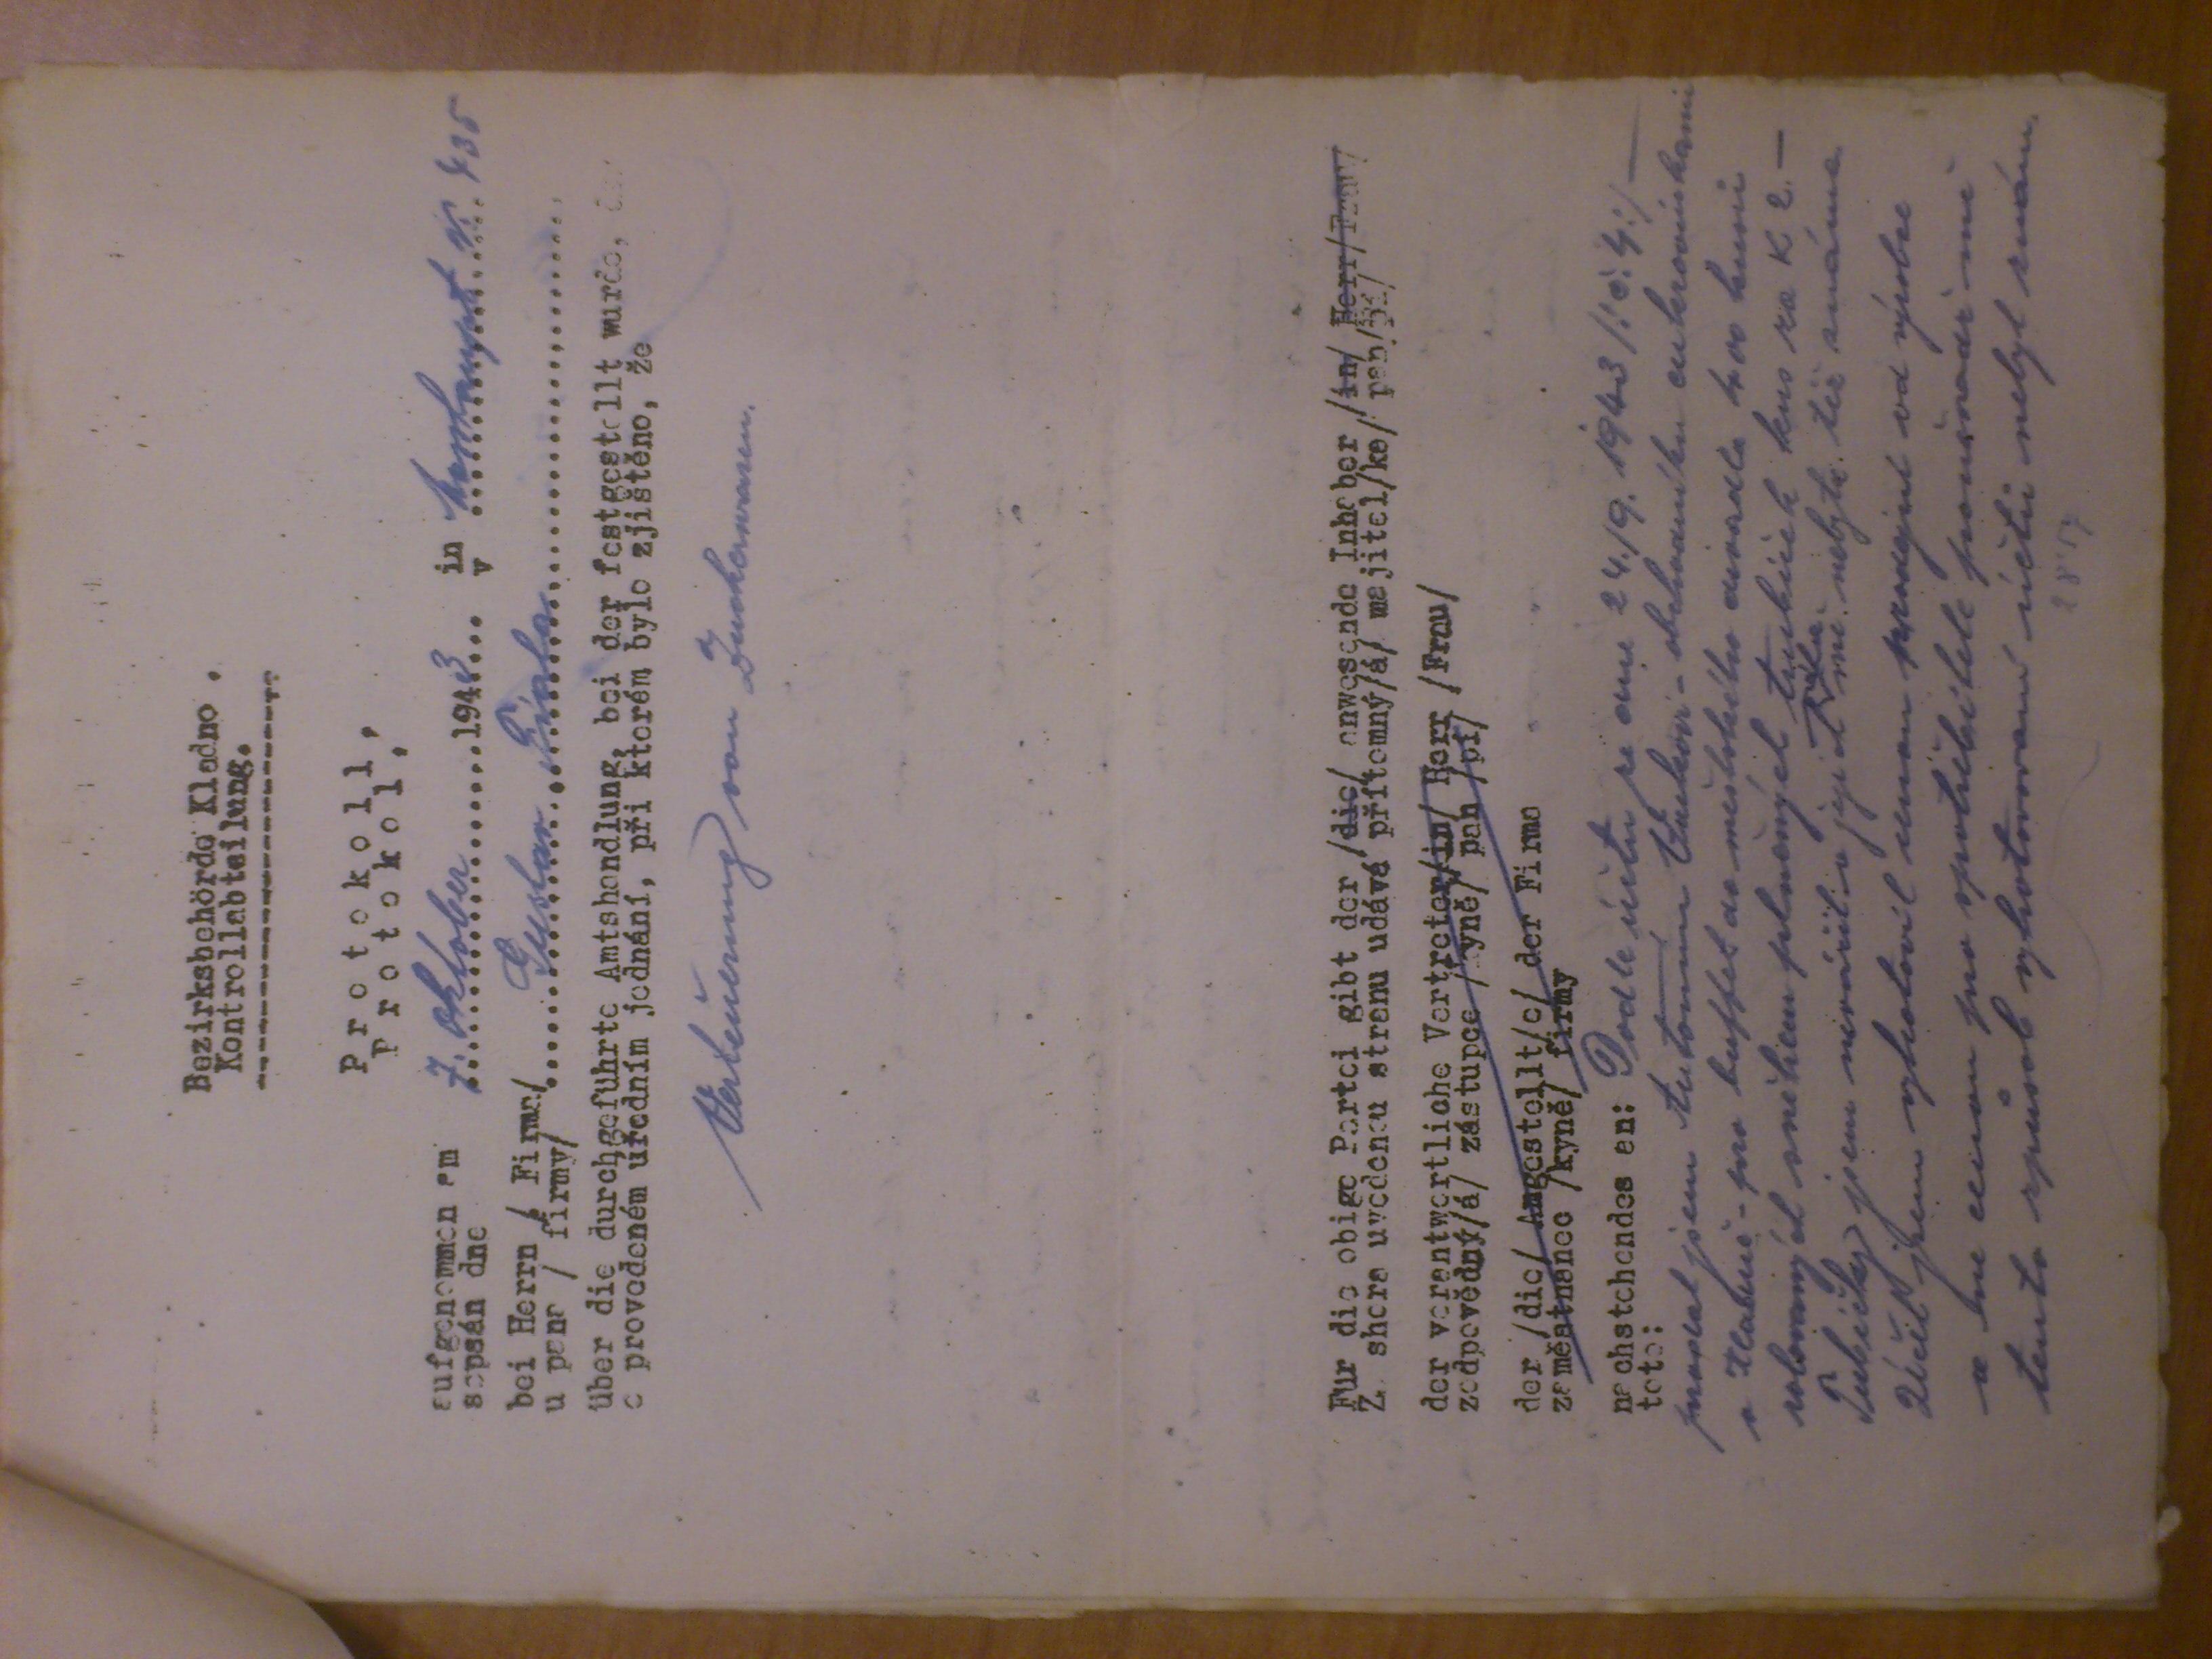 Bezirksbehörde Kladno.
Kontrollabteilung.
Protokoll,
Protokol,
aufgenommen am 7. Oktober 1943 in Nr. 435
sepsán dne v
bei Herrn / Firma/ Gustav Fiala
u pana / firmy/
über die durchgeführte Amtshandlung, bei der festgestellt wurde,
o provedeném úředním jednání, při kterém bylo zjištěno, že
Verteuerung von Zuckerwaren.
Für die obige Partei gibt der /die/ anwesende Inhaber /in/ Herr/Frau/
Za shora uvedenou stranu udává přítomný/á/ majitel/ka/ pan/pí/
der verantwortliche Vertreter/in/ Herr /Frau/
zodpovědný/á/ zástupce /kyně/ pan /pí/
der /die/ Angestellt/e/ der Firma
zaměstnanec /kyně/ firmy
nachstehendes an: Podle účtu ze dne 24./9. 1943 /:č. 4:/ —
toto:
prodal jsem Antonínu - obchodníku cukrovinkami
v Kladně - pro buffet do městského divadla 400 kusů
rolovaných sněhem plněných trubiček kus za K 2.-
Trubičky jsem nevážil a jejich váha mě nebyla též známa.
Účet jsem vyhotovil cenou prodejní od výrobce
a ne cenou pro spotřebitele poněvadž mě
tento způsob vyhotovování účtů nebyl znám.